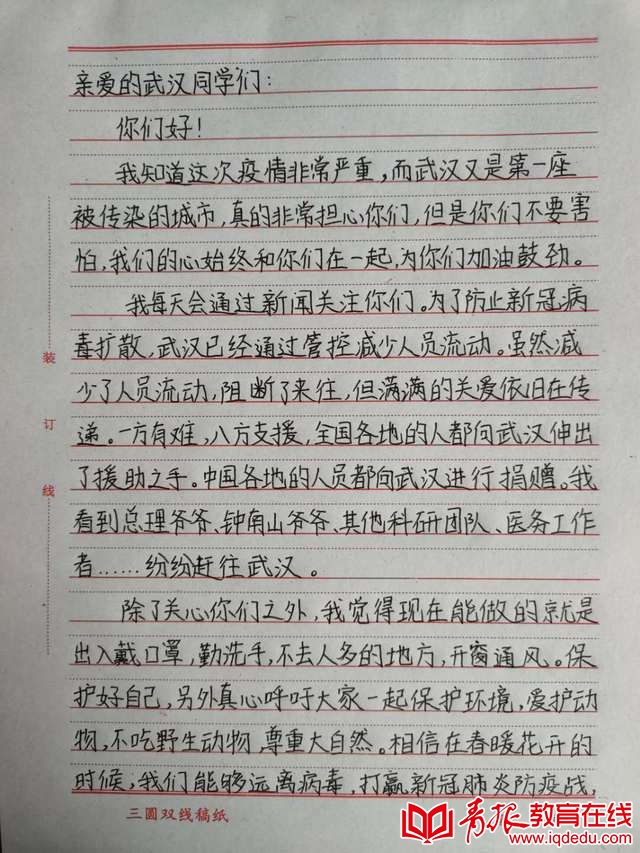 亲爱的武汉同学们：
你们好！
我知道这次疫情非常严重，而武汉又是第一座
被传染的城市，真的非常担心你们，但是你们不要害
怕，我们的心始终和你们在一起，为你们加油鼓劲。
我每天会通过新闻关注你们。为了防止新冠病
毒扩散，武汉已经通过管控减少人员流动。虽然减
少了人员流动，阻断了来往，但满满的关爱依旧在传
递。一方有难，八方支援，全国各地的人都向武汉伸出
了援助之手。中国各地的人员都向武汉进行捐赠。我
看到总理爷爷、钟南山爷爷、其他科研团队、医务工作
者……纷纷赶往武汉。
除了关心你们之外，我觉得现在能做的就是
出入戴口罩，勤洗手，不去人多的地方，开窗通风。保
护好自己，另外真心呼吁大家一起保护环境，爱护动
物，不吃野生动物，尊重大自然。相信在春暖花开的
时候，我们能够远离病毒，打赢新冠肺炎防疫战，
装
订
线
三圆双线稿纸
青报教育在线
www.iqdedu.com